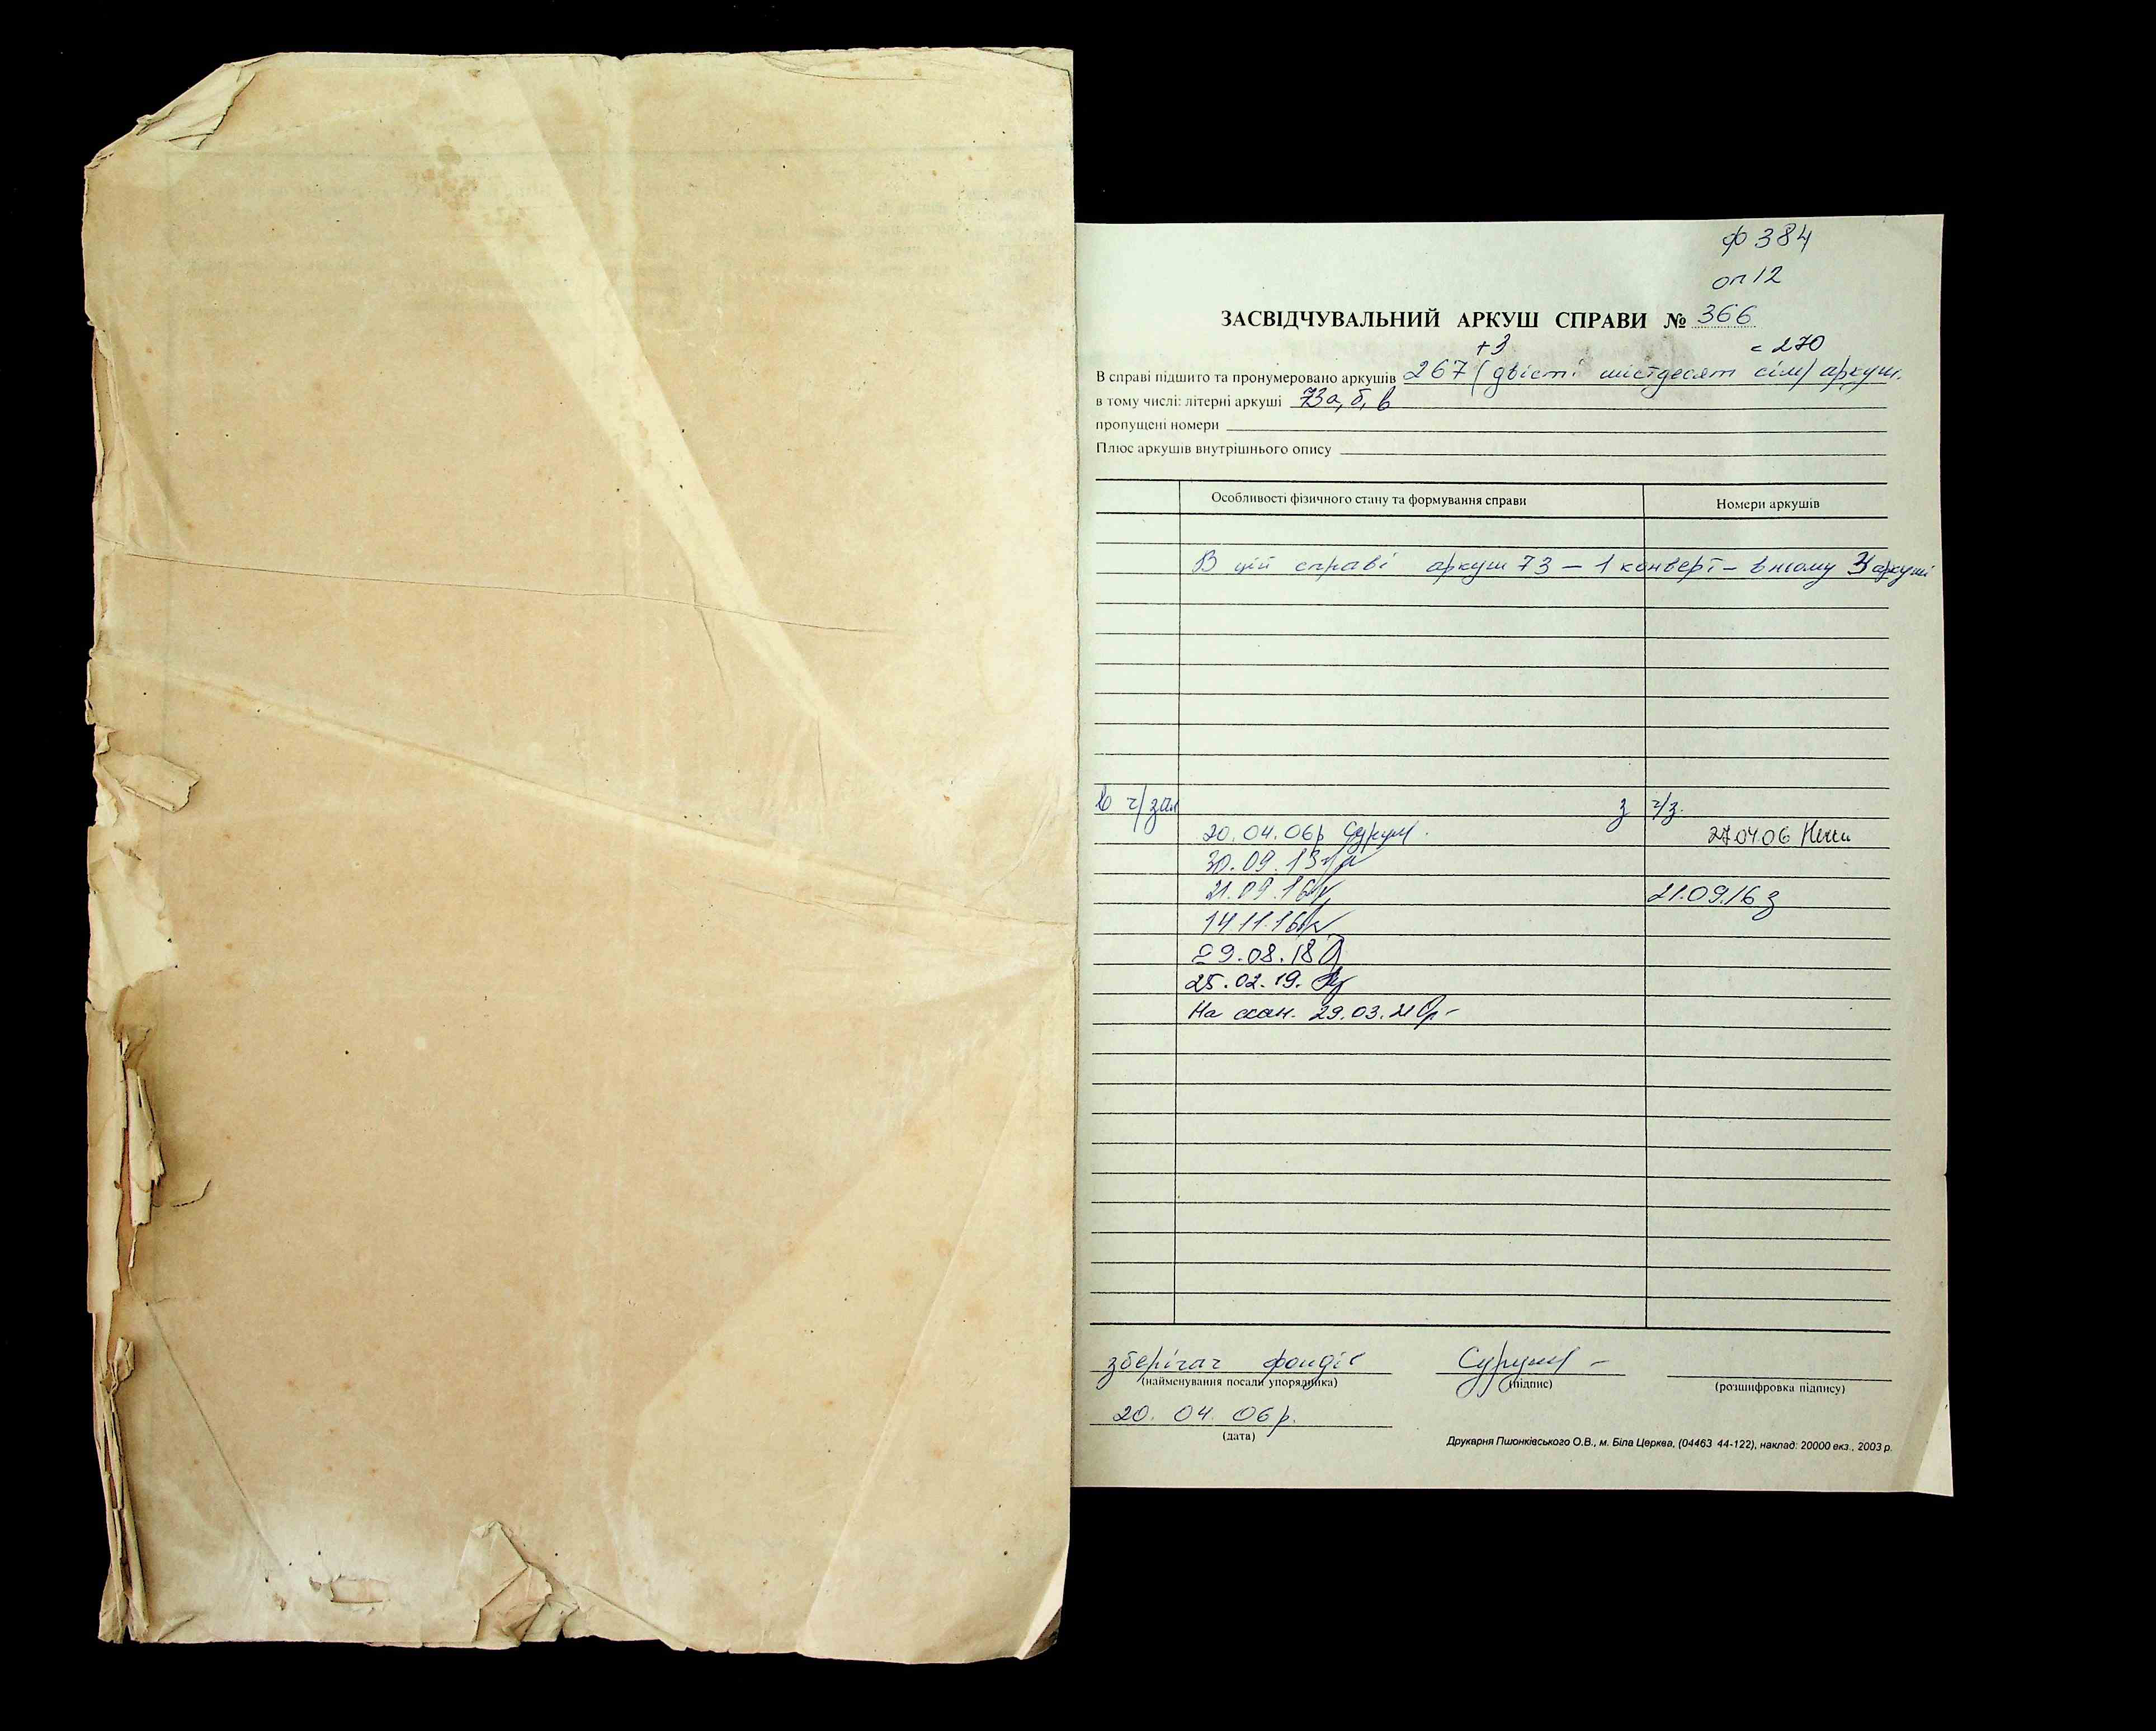 ф 384
оп 12
ЗАСВІДЧУВАЛЬНИЙ АРКУШ СПРАВИ № 366
+3 = 270
В справі підшито та пронумеровано аркушів 267 (двісті шістдесят сім) аркуш.
в тому числі: літерні аркуші 73а, б, в
пропущені номери
Плюс аркушів внутрішнього опису
Особливості фізичного стану та формування справи Номери аркушів
В цій справі аркуш 73 – 1 конверт – в ньому 3 аркуші
в ч/зал з ч/з.
20. 04. 06р 27.04.06
30. 09. 13
21. 09. 16 21.09.16 з
14 11. 16
29. 08. 18
25. 02. 19.
На скан. 29. 03. 21
зберігач фондів
(найменування посади упорядника) (підпис) (розшифровка підпису)
20. 04. 06 р.
(дата)
Друкарня Пшонківського О.В., м. Біла Церква, (04463 44-122), наклад: 20000 екз., 2003 р.